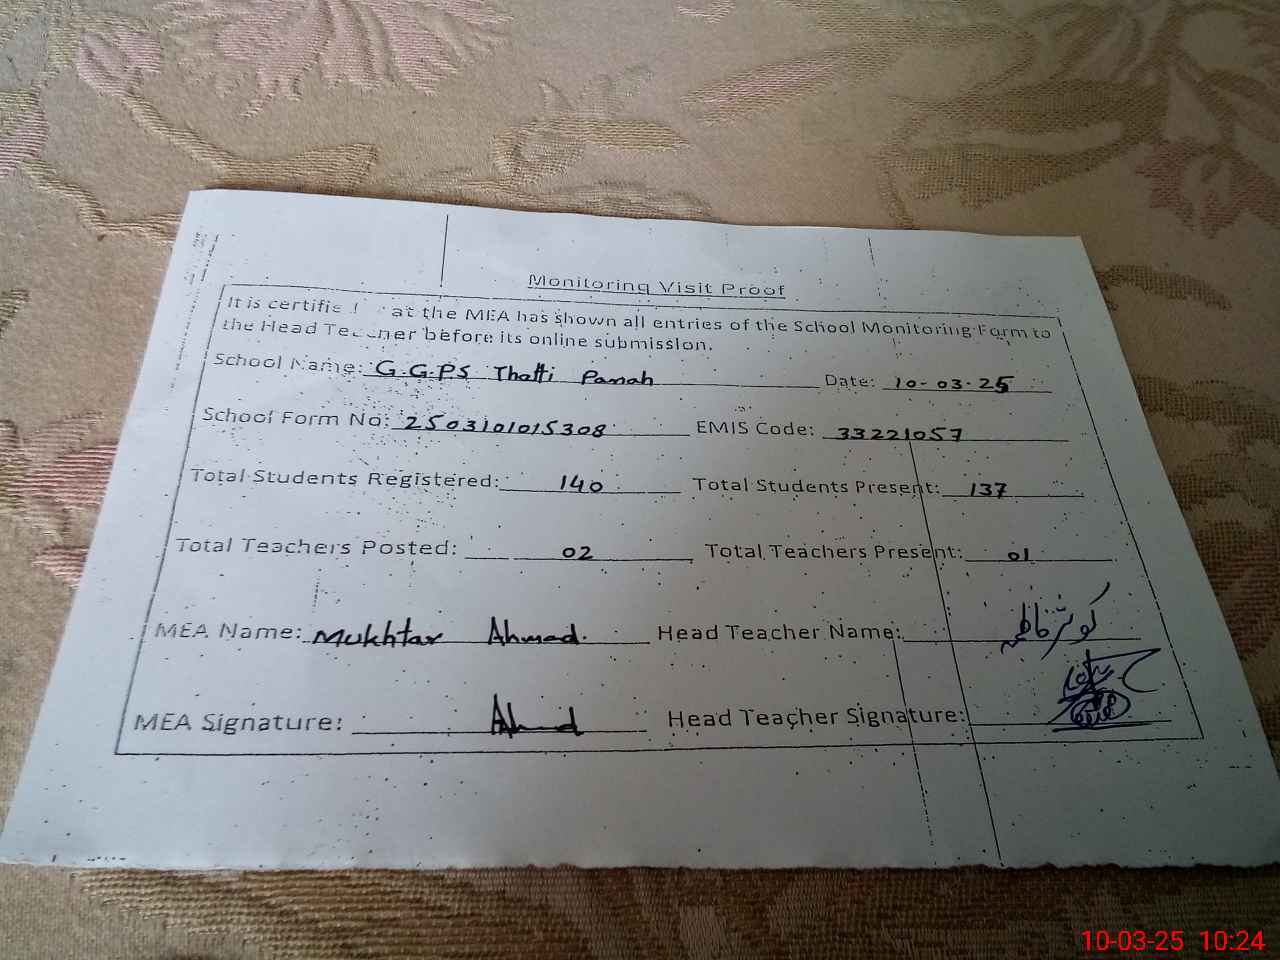 Monitoring Visit Proof
It is certifie at the MEA has shown all entries of the School Monitoring Form to
the Head Teacher before its online submission.
School Name: G.G.P.S Thatti Panah Date: 10-03-25
School Form No: 2503101015308 EMIS Code: 33221057
Total Students Registered: 140 Total Students Present: 137
Total Teachers Posted: 02 Total Teachers Present: 01
MEA Name: Mukhtar Ahmad. Head Teacher Name: کوثر فاطمہ
MEA Signature: Ahmad Head Teacher Signature:
10-03-25 10:24